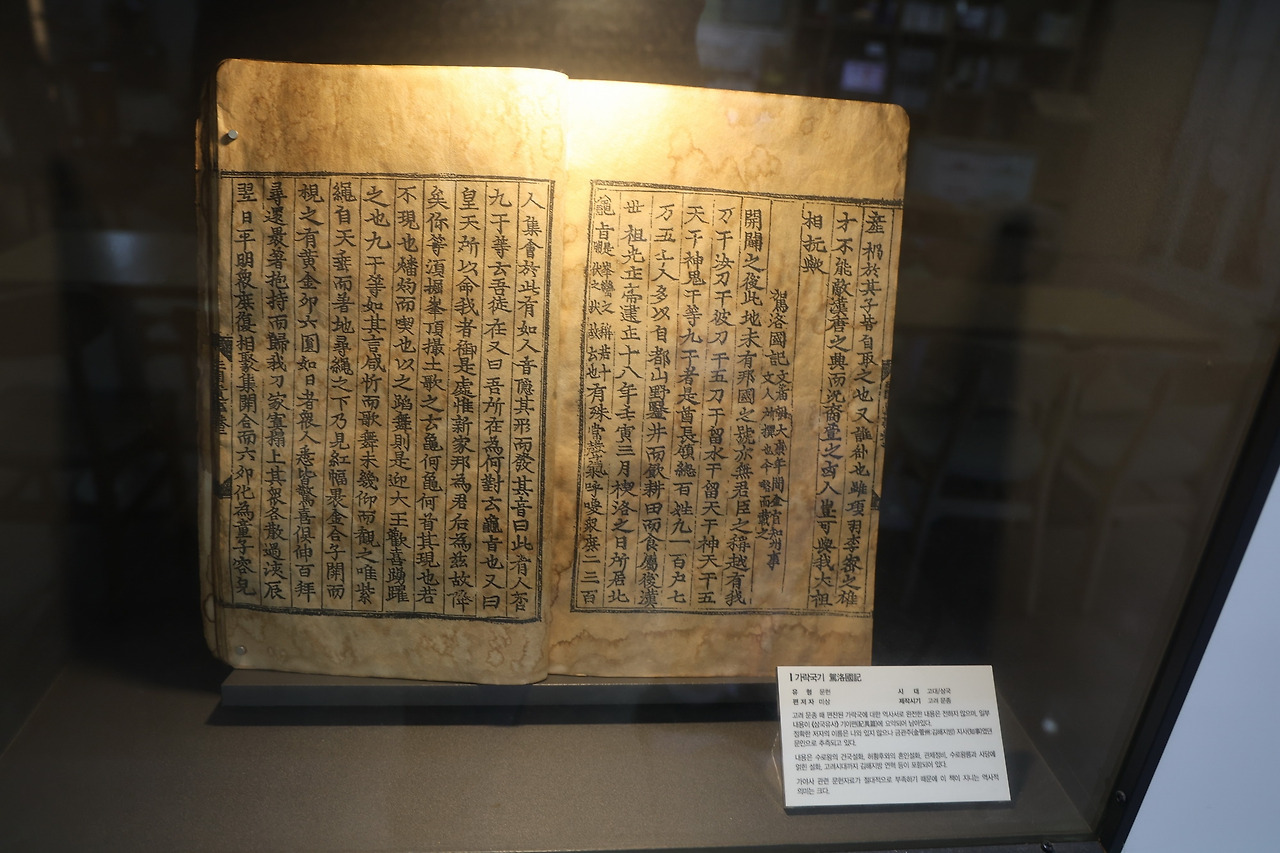 産禍於其子皆自取之也又誰咎也雖項羽李密之雄
才不能敵漢唐之興而況裔萱之凶人豈可與我太祖
相抗歟
駕洛國記 文廟朝大康年間金官知州事
文人所撰也今略而載之
開闢之後此地未有邦國之號亦無君臣之稱越有我
刀干汝刀干彼刀干五刀干留水干留天干神天干五
天干神鬼干等九干者是酋長領總百姓九一百户七
万五千人多以自都山野鑿井而飲耕田而食屬後漢
世祖光正帝建正十八年壬寅三月禊洛之日所居北
龜旨是峯巒之稱若十朋伏之狀故云也有殊常聲氣呼喚衆庶二三百
人集會於此有如人音隱其形而發其音曰此有人否
九干等云吾徒在又曰吾所在為何對云龜旨也又曰
皇天所以命我者御是處惟新家邦為君后為兹故降
矣你等湏掘峯頂撮土歌之云龜何龜何首其現也若
不現也燔灼而喫也以之蹈舞則是迎大王歡喜踴躍
之也九干等如其言咸忻而歌舞未幾仰而觀之唯紫
繩自天垂而著地尋繩之下乃見紅幅裹金合子開而
視之有黄金卵六圓如日者衆人悉皆驚喜俱伸百拜
尋還裹著抱持而歸我刀家寘榻上其衆各散過浹辰
翌日平明衆庶復相聚集開合而六卵化為童子容皃
가락국기 駕洛國記
유 형 문헌 시 대 고대/삼국
편 저 자 미상 제작시기 고려 문종
고려 문종 때 편찬된 가락국에 대한 역사서로 완전한 내용은 전하지 않으며, 일부
내용이 《삼국유사》 기이편(紀異篇)에 요약되어 남아있다.
정확한 저자의 이름은 나와 있지 않으나 금관주(金官州:김해지방) 지사(知事)였던
문인으로 추측되고 있다.
내용은 수로왕의 건국설화, 허황후와의 혼인설화, 관제정비, 수로왕릉과 사당에
얽힌 설화, 고려시대까지 김해지방 연혁 등이 포함되어 있다.
가야사 관련 문헌자료가 절대적으로 부족하기 때문에 이 책이 지니는 역사적
의미는 크다.